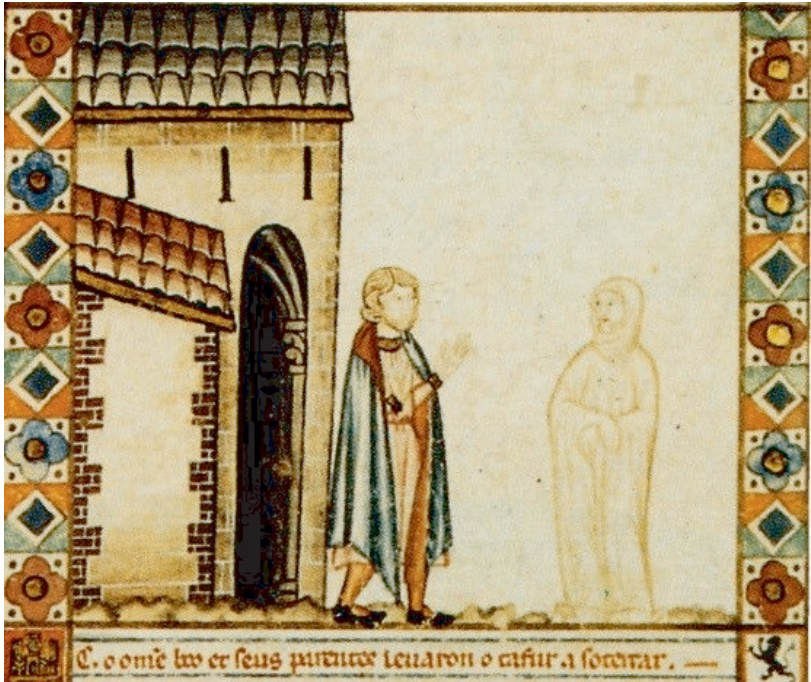 C. o om̃e boo et seus parentes leuaron o tafur . a soterrar.